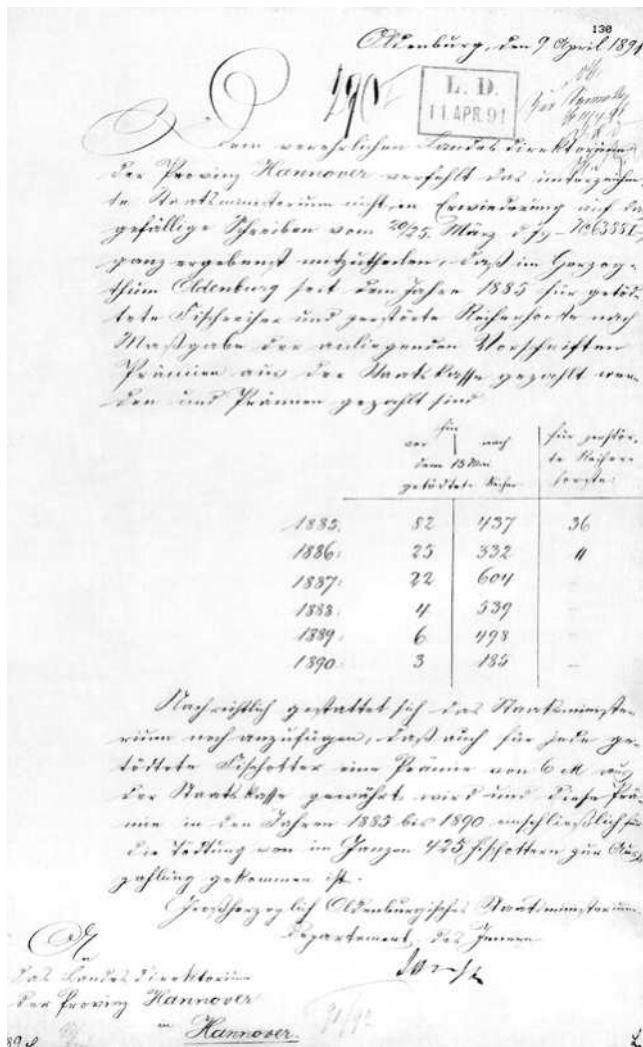 130
Oldenburg, den 9 April 1891
290
L. D.
11. APR. 91
Dem verehrlichen Landesdirektorium
der Provinz Hannover verfehlt das unterzeichne-
te Staatsministerium nicht in Erwiederung auf das
gefällige Schreiben vom 20/25. März d. J.
ganz ergebenst mitzutheilen, daß im Herzog-
thum Oldenburg seit dem Jahre 1885 für getöd-
tete Fischreiher und zerstörte Reiherhorste nach
Maßgabe der anliegenden Vorschriften
Prämien aus der Staatskasse gezahlt wer-
den und Prämien gezahlt sind
für
vor | nach | für zerstör-
dem 15 Mai | te Reiher-
getödtete Reiher | horste:
1885: 82 437 36
1886: 25 332 "
1887: 22 604 -
1888: 4 539 -
1889: 6 498 -
1890: 3 185 -
Nachrichtlich gestattet sich das Staatsministe-
rium noch anzufügen, daß auch für jede ge-
tödtete Fischotter eine Prämie von 6 M aus
der Staatskasse gewährt wird und diese Prä-
mie in den Jahren 1885 bis 1890 einschließlich für
die Tödtung von im Ganzen 425 Fischottern zur Aus-
zahlung gekommen ist.
Großherzoglich Oldenburgisches Staatsministerium
Departement des Innern
An
das Landesdirektorium
der Provinz Hannover
in
Hannover.
91/92